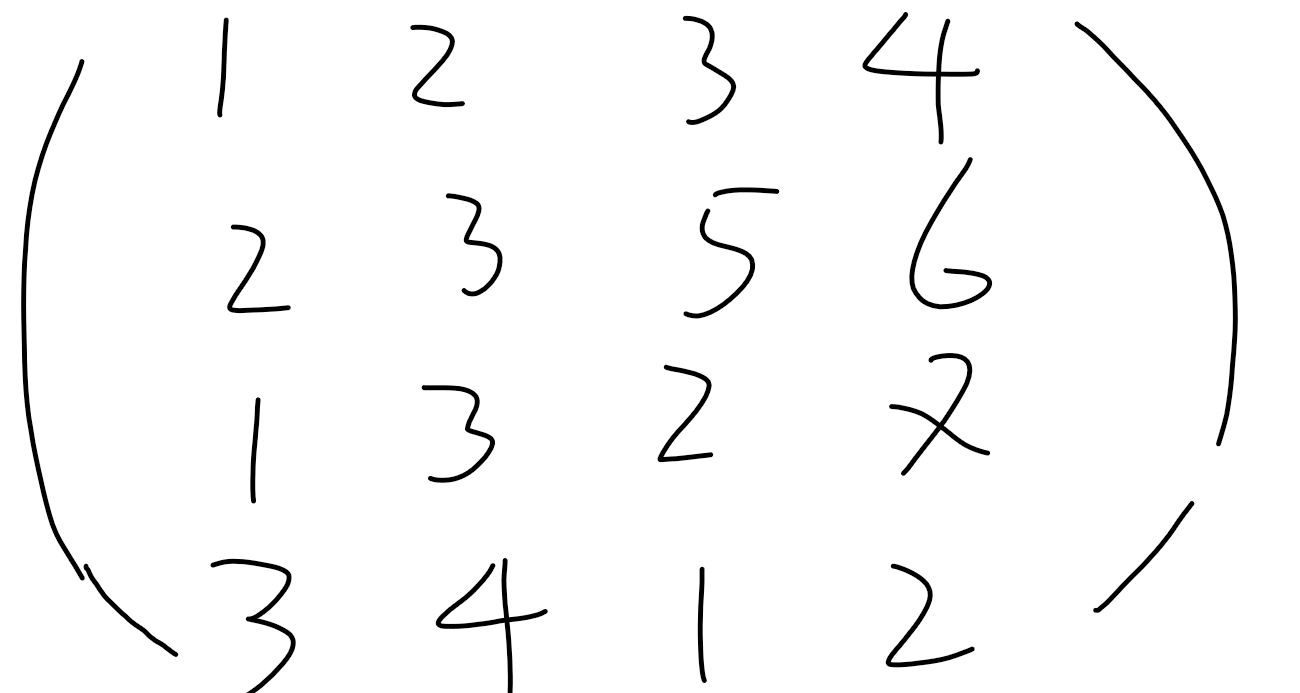 1 2 3 4
2 3 5 6
1 3 2 7
3 4 1 2